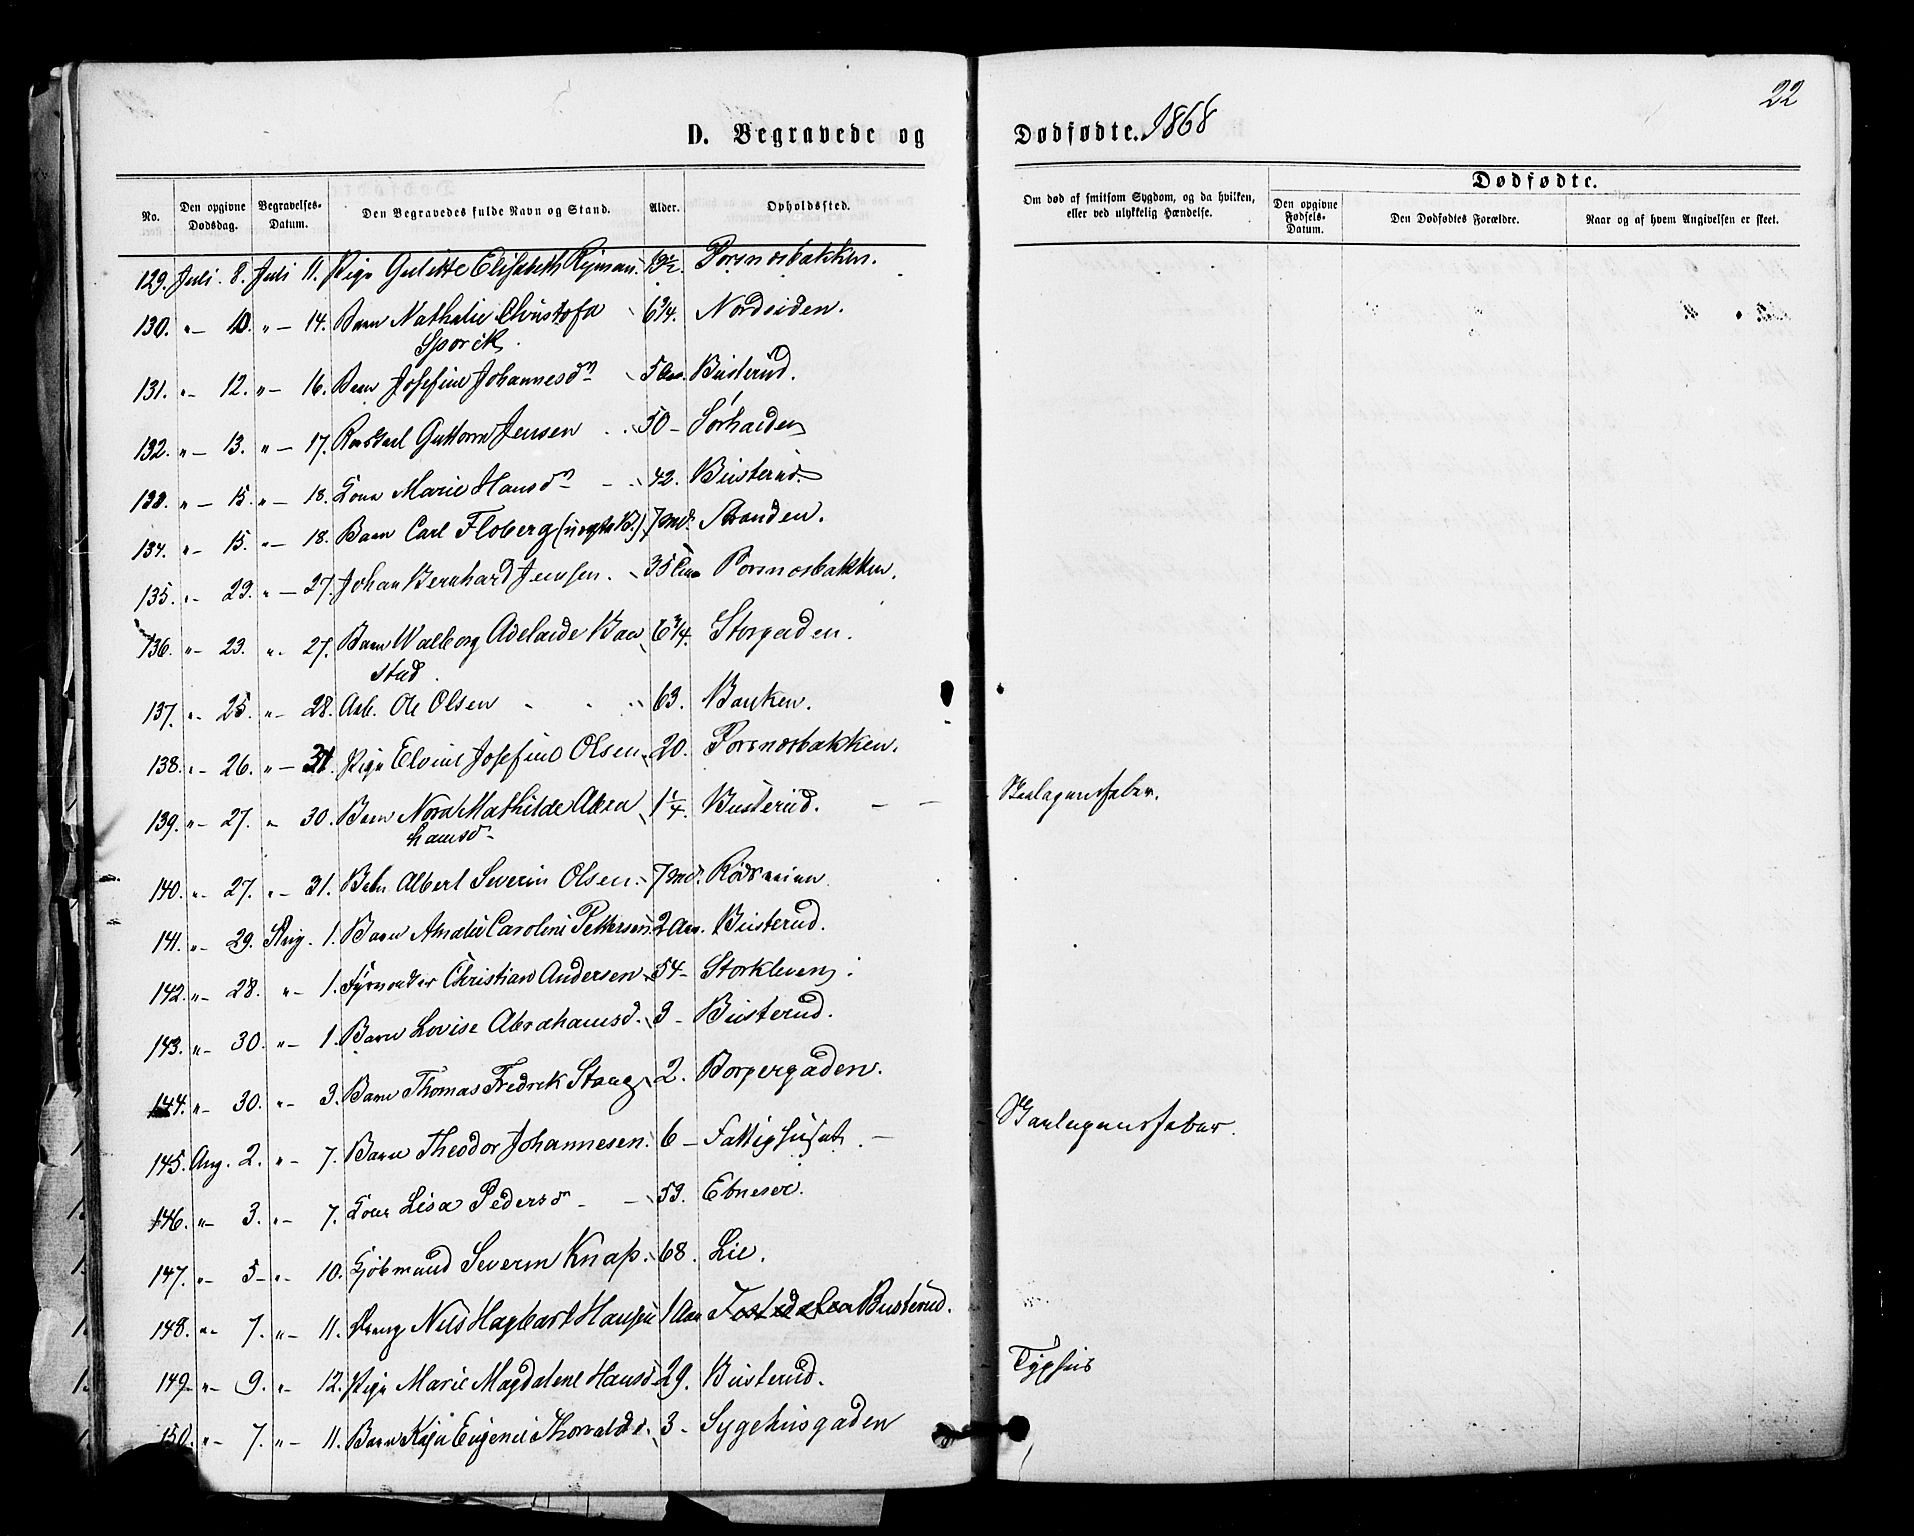 22
D. Begravede og Dødfødte. 1868
No. Den opgivne Dødsdag. Begravelses-Datum. Den Begravedes fulde Navn og Stand. Alder. Opholdssted. Om død af smitsom Sygdom, og da hvilken, eller ved ulykkelig Hændelse. Dødfødte.
Den opgivne Fødsels-Datum. Den Dødfødtes Forældre. Naar og af hvem Angivelsen er skeet.
129. Juli 8. Juli 11. Pige Gulette Elisabeth 19½ Porsnæsbakken.
130. "- 10. "- 14. Barn Nathalie Christofa 6¾. Nordsiden.
131. "- 12. "- 16. Barn Josefine Johannesdn 5 Busterud.
132. "- 13. "- 17. Guttorm Jensen 50 -
133. "- 15. "- 18. Kone Marie Hansdn - 42. Busterud.
134. "- 15. "- 18. Barn Carl Floberg (uægte B.) 7 Md. Stranden.
135. "- 23. "- 27. Johan Bernhard Jensen. 35 Porsnæsbakken.
136. "- 23. "- 27. Barn Walborg Adelaide Baa 6¾. Storgaden.
stad.
137. "- 25. "- 28. Arb. Ole Olsen 63. Banken.
138. "- 26. "- 31. Pige Elvine Josefine Olsen 20. Porsnæsbakken.
139. "- 27. "- 30. Barn Nora Mathilde 1¼ Busterud. - - Skarlagensfeber.
Hansd-
140. "- 27. "- 31. Barn Albert Severin Olsen. 7 Md. Rødsveien
141. "- 29. Aug. 1. Barn Amalie Caroline Pettersen 2 Aar. Busterud.
142. "- 28. "- 1. Christian Andersen 54- Storkleven.
143. "- 30. "- 1. Barn Lovise Abrahamsd. 3 - Busterud.
144. "- 30. "- 3. Barn Thomas Fredrik Stang 2. Borgergaden.
145. Aug. 2. "- 7. Barn Theodor Johannesen. 6 - Fattighuset. - Skarlagensfeber.
146. "- 3. "- 7. Kone Lisa Pedersdn - - 53. Ebneser.
147. "- 5- "- 10. Kjøbmand Severin Knap. 68. Lie.
148. "- 7. "- 11. Dreng Nils Hagbart Hansen 1 Aar Busterud.
149- "- 9. "- 12. Pige Marie Magdalene Hansd 29. Busterud. Typhus
150. "- 7. "- 11. Barn Kaja Eugenie Thorvaldsd. 3 - Sygehusgaden